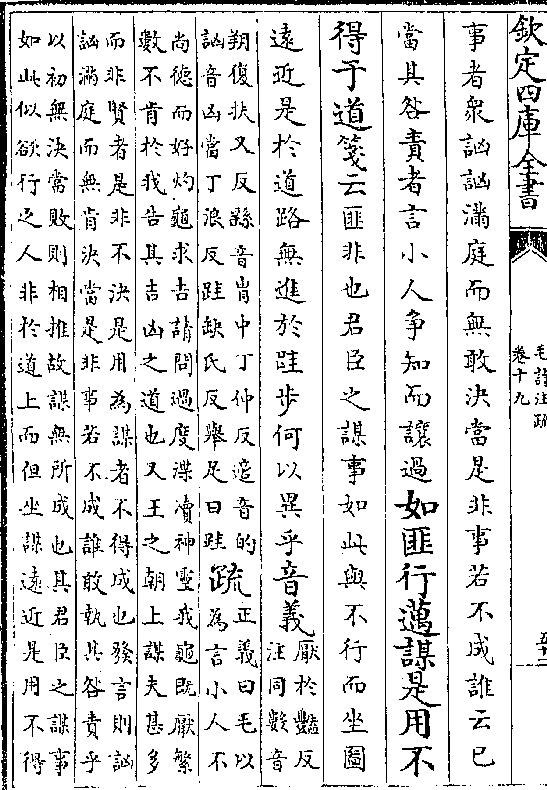 欽定四庫全書
毛詩注疏
卷十九
五十二
事者衆訩訩滿庭而無敢決當是非事若不成誰云已
當其咎責者言小人争知而讓過如匪行邁謀是用不
得于道箋云匪非也君臣之謀事如此與不行而坐圖
遠近是於道路無進於跬步何以異乎音義厭於豔反
注同數音
朔復扶又反繇音胄中丁仲反適音的
訩音凶當丁浪反跬缺氏反舉足曰跬疏正義曰毛以
為言小人不
尚德而好灼龜求吉請問過度渫瀆神靈我龜既厭繁
數不肯於我告其吉凶之道也又王之朝上謀夫甚多
而非賢者是非不決是用為謀者不得成也發言則訩
訩滿庭而無肯決當是非事若不成誰敢執其咎責乎
以初無決當敗則相推故謀無所成也其君臣之謀事
如此似欲行之人非於道上而但坐謀遠近是用不得